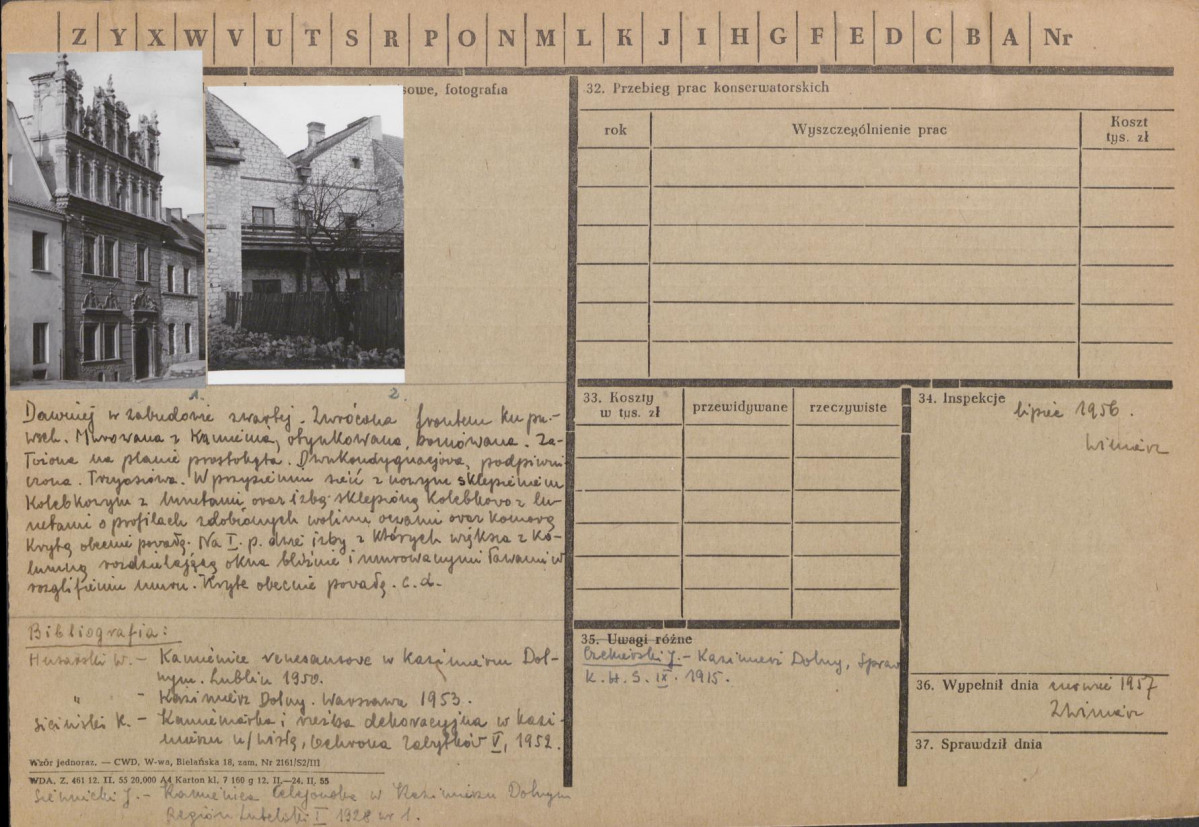 Z Y X W V U T S R P O N M L K J I H G F E D C B A Nr
sowe, fotografia
1. 2.
Dawniej w zabudowie zwartej. Zwrócona frontem ku pn-
wsch. Murowana z kamienia, otynkowana, boniowana. Za-
łożona na planie prostokąta. Dwukondygnacjowa, podpiwni-
czona. Trzyosiowa. W przyziemiu sień z nowym sklepieniem
kolebkowym z lunetami, oraz izbą sklepioną kolebkowo z lu-
netami o profilach zdobionych wolimi oczami oraz komorą
krytą obecnie powałą. Na I. p. dwie izby z których większa z ko-
lumną rozdzielającą okna bliźnie i murowanymi ławami w
rozglifieniu muru. Kryte obecnie powałą. c. d.
Bibliografia:
Husarski W. - Kamienice renesansowe w Kazimierzu Dol-
nym. Lublin 1950.
" - Kazimierz Dolny. Warszawa 1953.
Siciński K. - Kamieniarka i rzeźba dekoracyjna w Kazi-
mierzu n/Wisłą, Ochrona Zabytków V, 1952.
Wzór jednoraz. — CWD, W-wa, Bielańska 18, zam. Nr 2161/S2/III
WDA. Z. 461 12. II. 55 20,000 A4 Karton kl. 7 160 g 12. II.—24. II. 55
Siennicki J. - Kamienica Celejowska w Kazimierzu Dolnym
Region Lubelski I 1928 nr 1.
32. Przebieg prac konserwatorskich
rok Wyszczególnienie prac Koszt
tys. zł
33. Koszty
w tys. zł przewidywane rzeczywiste
34. Inspekcje
lipiec 1956.
Winiarz
35. Uwagi różne
J. - Kazimierz Dolny, Spraw
K. H. S. IX. 1915.
36. Wypełnił dnia 1957
Winiarz
37. Sprawdził dnia